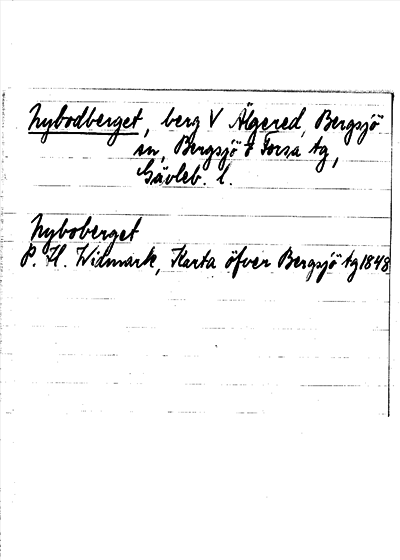 Nybodberget, berg V Älgered, Bergsjö
sn, Bergsjö o Forsa tg,
Gävleb. l.
Nyboberget
P. H. Widmark, Karta öfver Bergsjö tg 1848